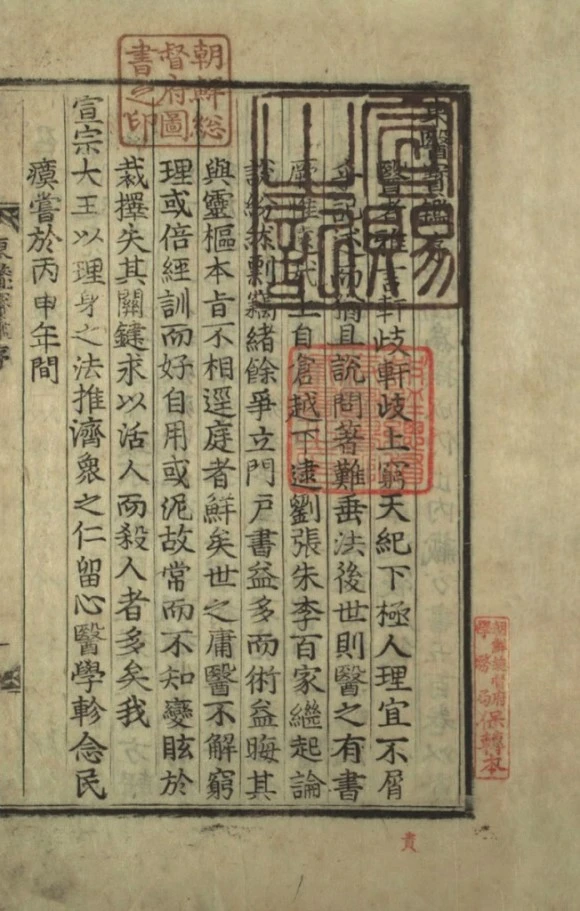 朝鮮総
督府圖
書之印
宣賜
之記
東醫寶鑑序
醫者雅言軒歧軒歧上窮天紀下極人理宜不屑
乎記述而猶且說問著難垂法後世則醫之有書
厥惟遠哉上自倉越下逮劉張朱李百家繼起論
說紛然剽竊緖餘爭立門戶書益多而術益晦其
與靈樞本旨不相逕庭者鮮矣世之庸醫不解窮
理或倍經訓而好自用或泥故常而不知變眩於
裁擇失其關鍵求以活人而殺人者多矣我
宣宗大王以理身之法推濟衆之仁留心醫學軫念民
瘼嘗於丙申年間
朝鮮總督府
學務局
保轉本
貴